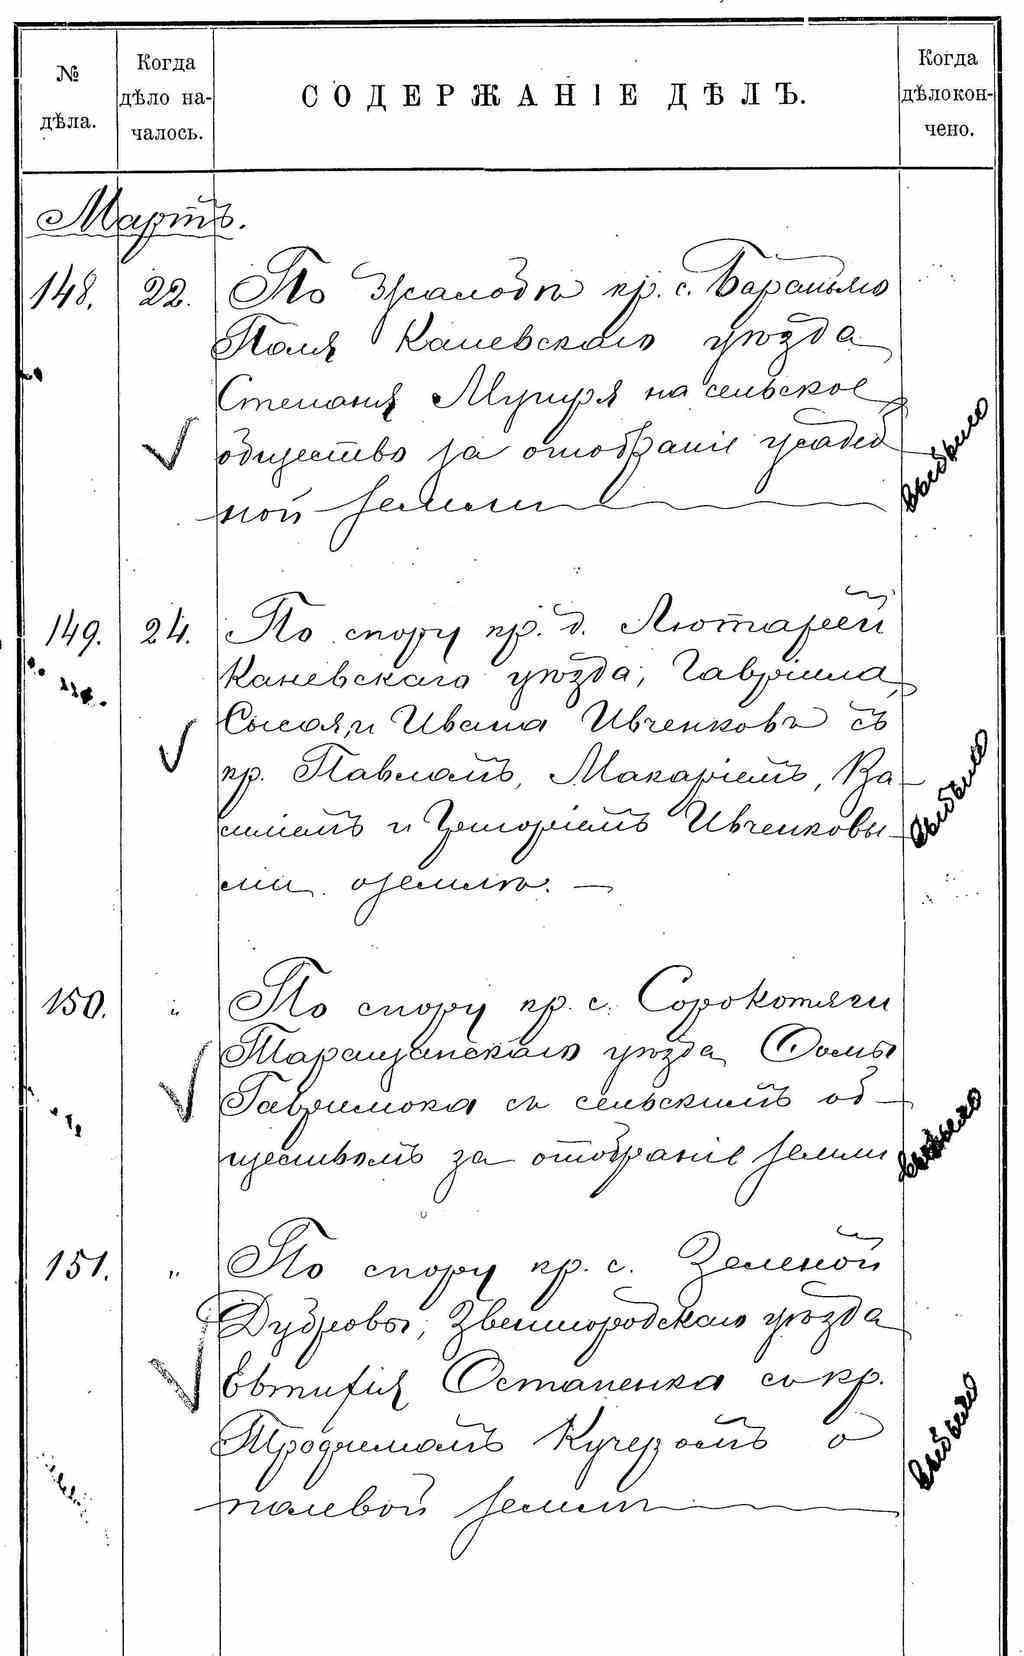 № дѣла.
Когда дѣло началось.
СОДЕРЖАНІЕ ДѢЛЪ.
Когда дѣло кончено.
Мартъ.
148. 22. По жалобѣ кр. с. Бараньяго
Поля Каневскаго уѣзда
Степана на сельское
общество за отобраніе усадеб
ной земли
выбыло
149. 24. По спору кр. д. Лютарей
Каневскаго уѣзда, Гавріила,
Сысоя, и Ивана Ивченковъ съ
кр. Павломъ, Макаріемъ, Ва-
силіемъ и Григоріемъ Ивченковы-
ми о землѣ. —
выбыло
150. " По спору кр. с. Сорокотяги
Таращанскаго уѣзда Ѳомы
Гаврилюка съ сельскимъ об-
ществомъ за отобраніе земли
выбыло
151. " По спору кр. с. Зеленой
Дубровы, Звенигородскаго уѣзда
Евтифія Остапенка съ кр.
Трофимомъ Кучеромъ о
полевой землѣ
выбыло